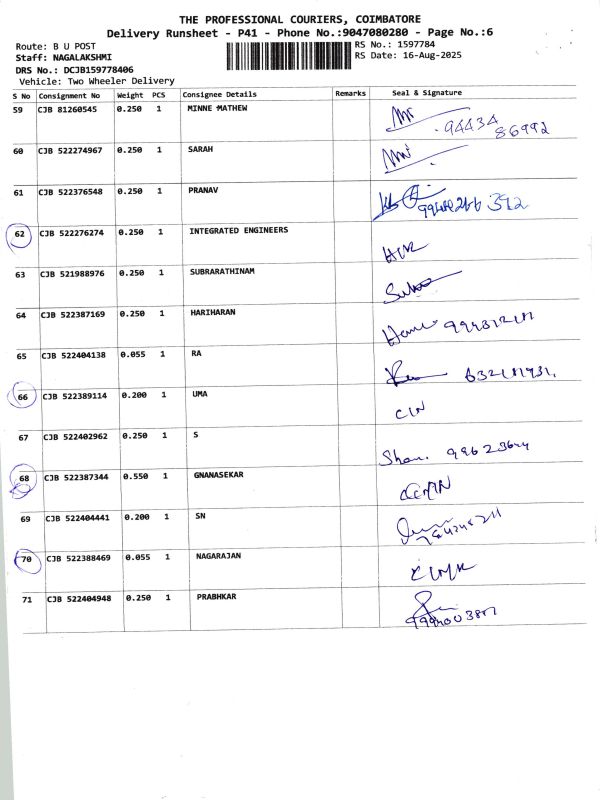 THE PROFESSIONAL COURIERS, COIMBATORE
Delivery Runsheet - P41 - Phone No.:9047080280 - Page No.:6
Route: B U POST RS No.: 1597784
Staff: NAGALAKSHMI RS Date: 16-Aug-2025
DRS No.: DCJB159778406
Vehicle: Two Wheeler Delivery
S No Consignment No Weight PCS Consignee Details Remarks Seal & Signature
59 CJB 81260545 0.250 1 MINNE MATHEW 94434
86992
60 CJB 522274967 0.250 1 SARAH
61 CJB 522376548 0.250 1 PRANAV
62 CJB 522276274 0.250 1 INTEGRATED ENGINEERS
63 CJB 521988976 0.250 1 SUBRARATHINAM
64 CJB 522387169 0.250 1 HARIHARAN
65 CJB 522404138 0.055 1 RA
66 CJB 522389114 0.200 1 UMA
67 CJB 522402962 0.250 1 S
68 CJB 522387344 0.550 1 GNANASEKAR
69 CJB 522404441 0.200 1 SN
70 CJB 522388469 0.055 1 NAGARAJAN
71 CJB 522404948 0.250 1 PRABHKAR